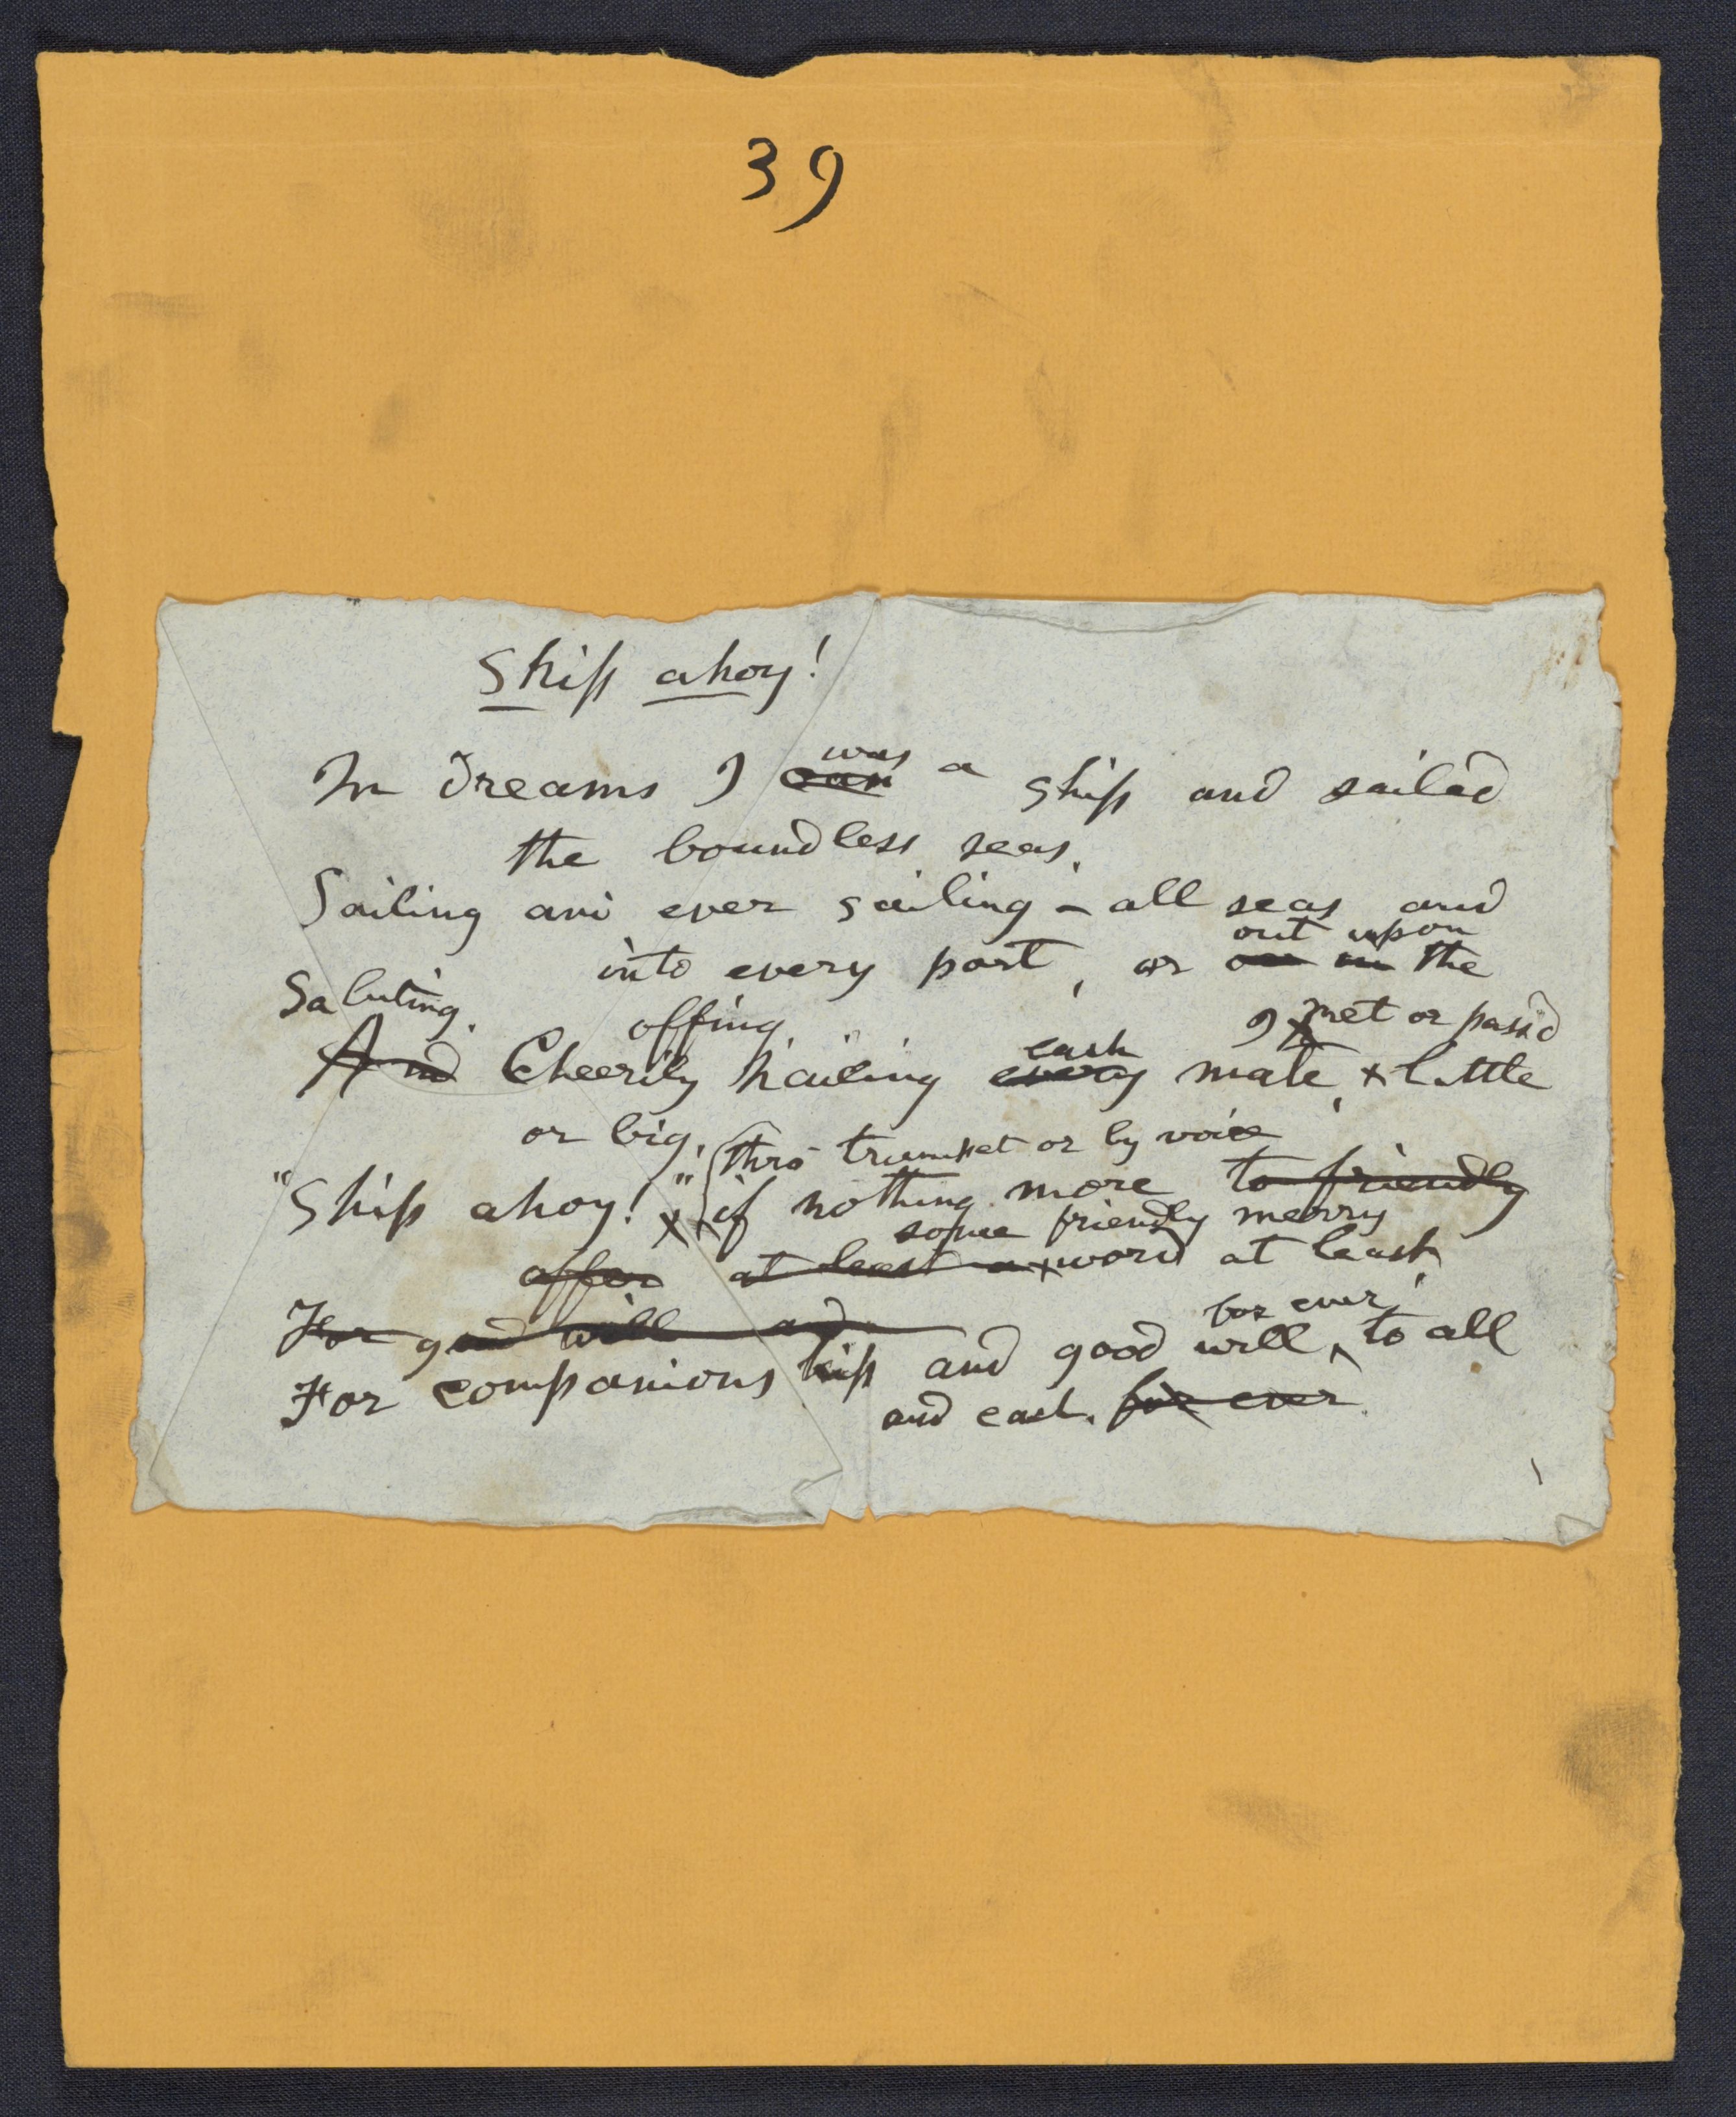 39
Ship ahoy!
was
In dreams I a ship and sailed
the boundless seas,
Sailing and ever sailing – all seas and
out upon
into every port, or the
Saluting,
offing,
I met or pass'd
each
And Cheerily hailing every mate, little
or big,
thro' trumpet or by voice
"Ship ahoy!" if nothing more to friendly
some friendly merry
offer at least a word at least
for ever
For good will and
For companionship and good will to all
and each. for ever